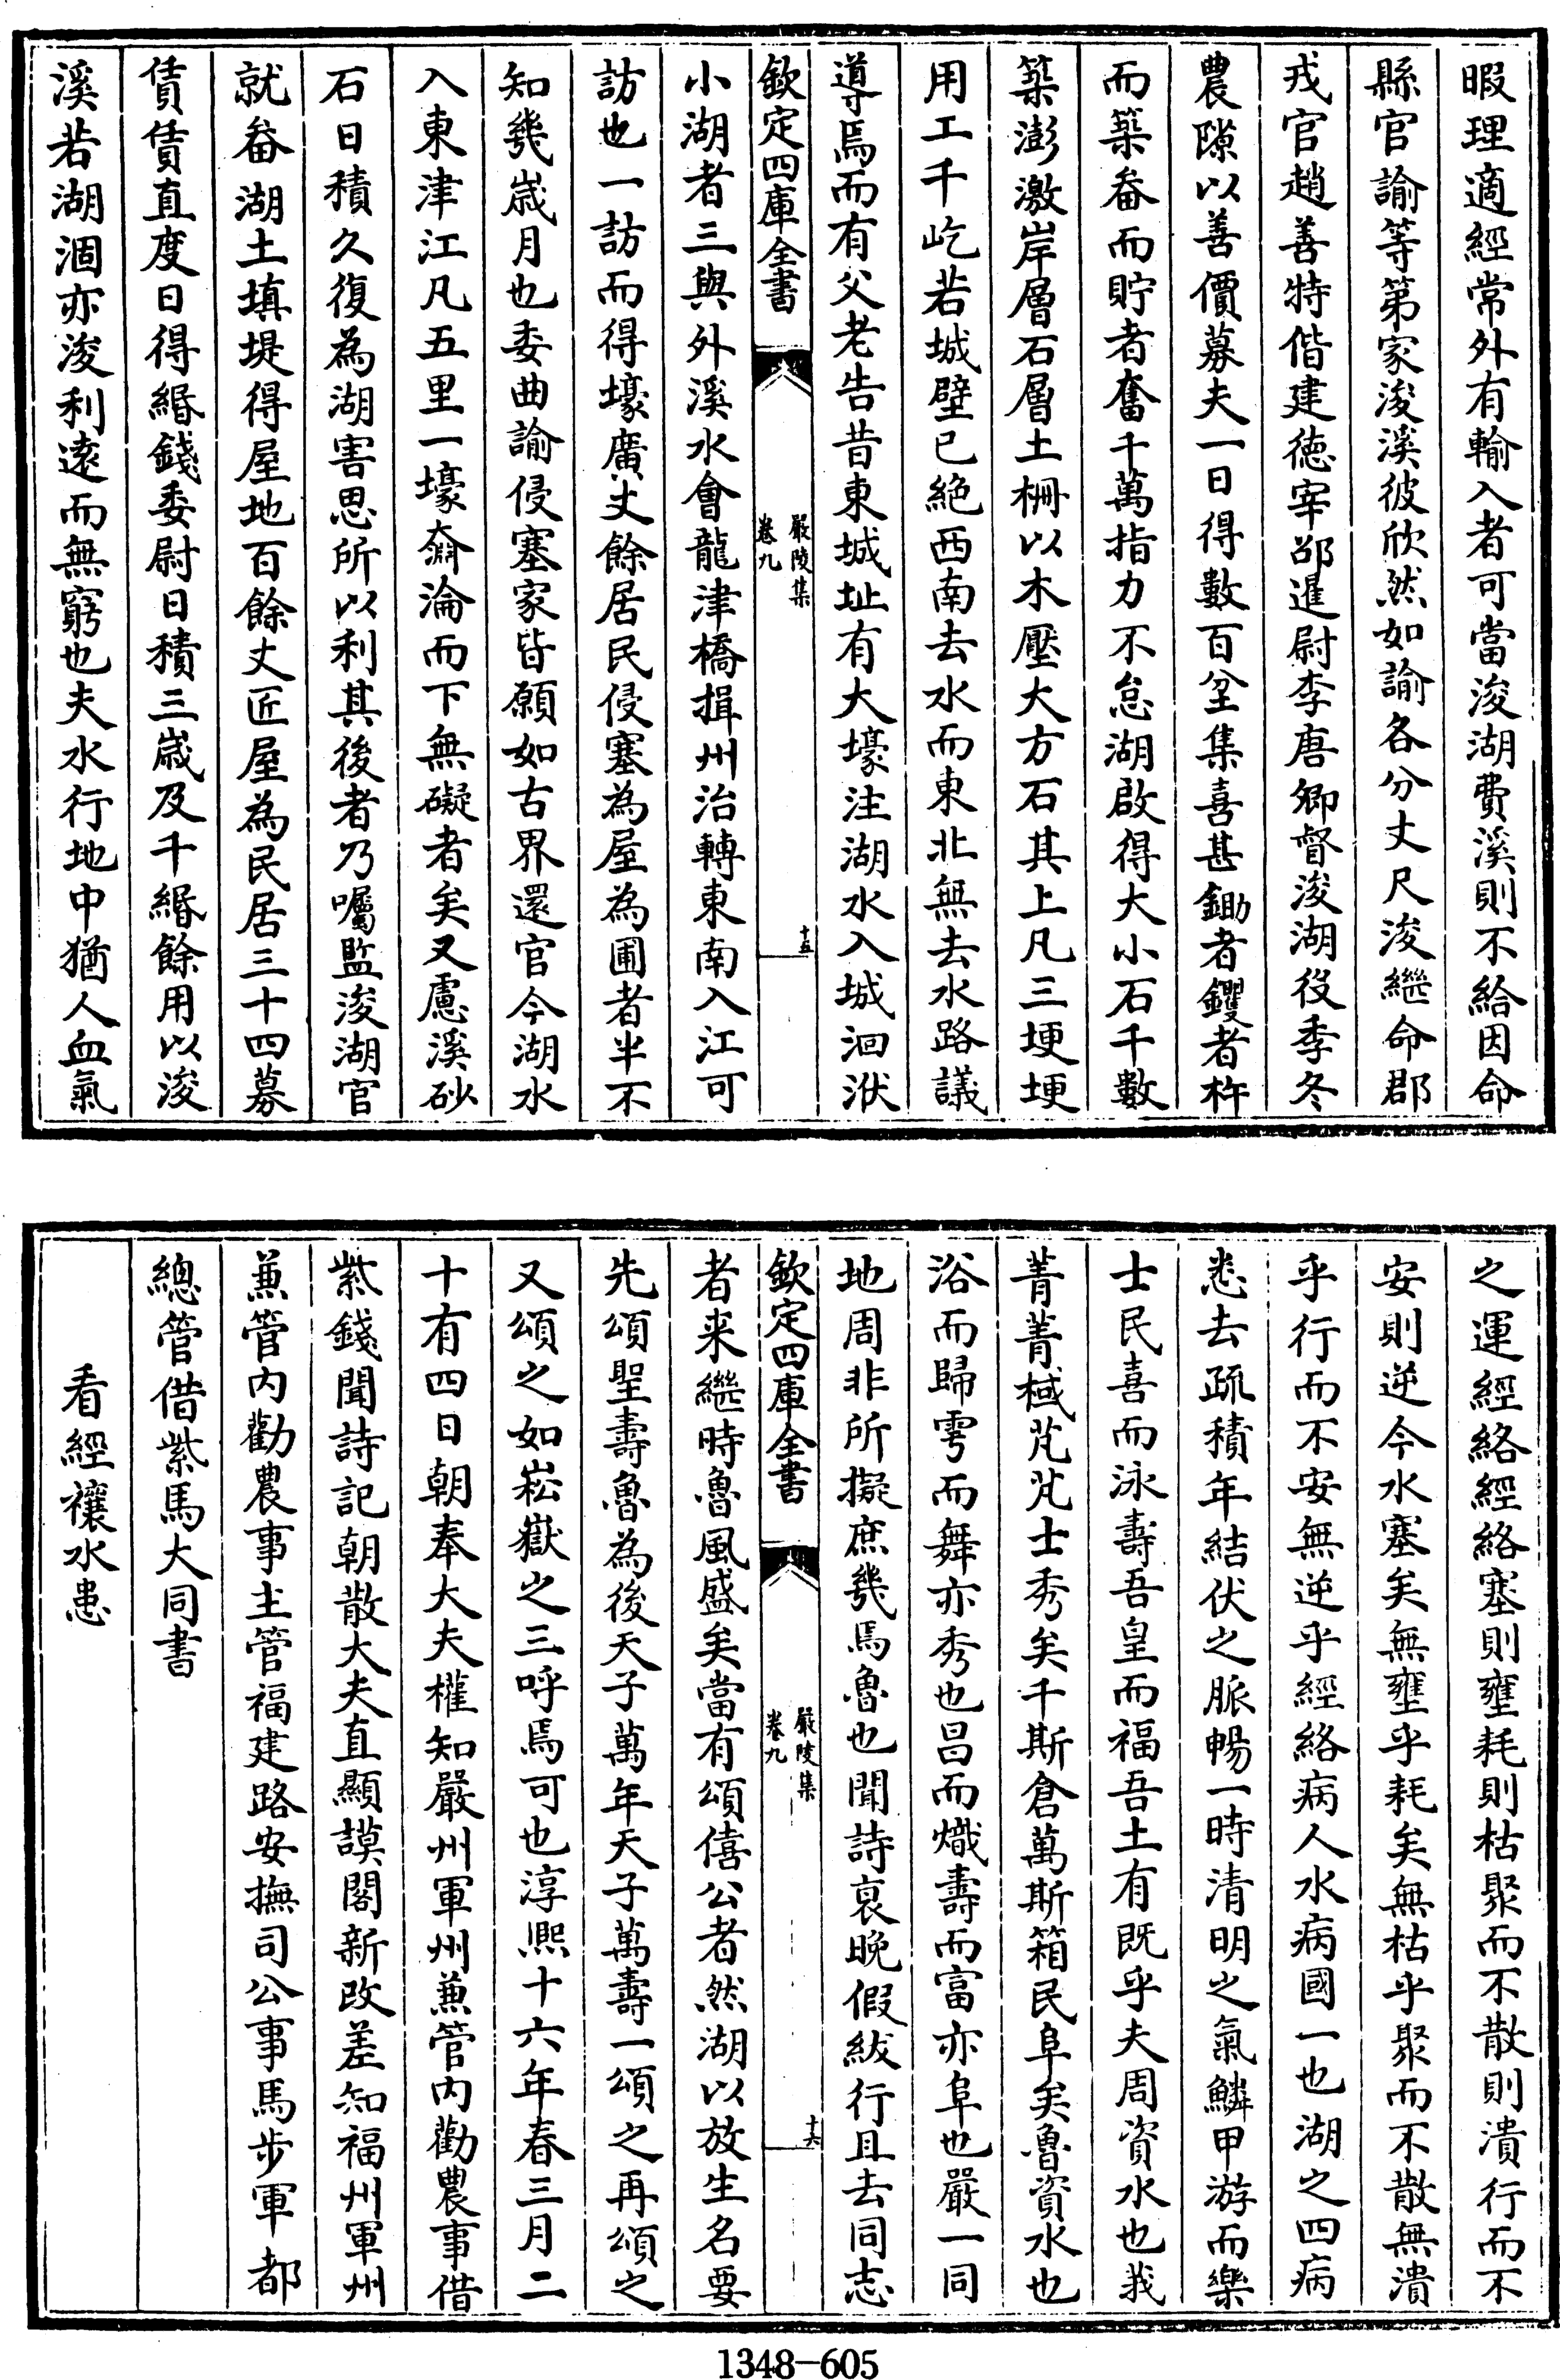 暇理適經常外有輸入者可當浚湖費溪則不給因命
縣官諭等第家浚溪彼欣然如諭各分丈尺浚繼命郡
戎官趙善特偕建徳宰邵暹尉李唐卿督浚湖役季冬
農隙以善價募夫一日得數百坌集喜甚鋤者钁者杵
而築畚而貯者奮千萬指力不怠湖啟得大小石千數
築澎激岸層石層土柵以木壓大方石其上凡三埂埂
用工千屹若城壁已絶西南去水而東北無去水路議
導焉而有父老告昔東城址有大壕注湖水入城洄洑
欽定四庫全書
嚴陵集
卷九
十五
小湖者三與外溪水會龍津橋揖州治轉東南入江可
訪也一訪而得壕廣丈餘居民侵塞為屋為圃者半不
知幾歲月也委曲諭侵塞家皆願如古界還官今湖水
入東津江凡五里一壕奫淪而下無礙者矣又慮溪砂
石日積久復為湖害思所以利其後者乃囑監浚湖官
就畚湖土填堤得屋地百餘丈匠屋為民居三十四募
賃賃直度日得緡錢委尉日積三歲及千緡餘用以浚
溪若湖涸亦浚利逺而無窮也夫水行地中猶人血氣
之運經絡經絡塞則壅耗則枯聚而不散則潰行而不
安則逆今水塞矣無壅乎耗矣無枯乎聚而不散無潰
乎行而不安無逆乎經絡病人水病國一也湖之四病
悉去疏積年結伏之脈暢一時清明之氣鱗甲游而樂
士民喜而泳壽吾皇而福吾土有既乎夫周資水也莪
菁菁棫芃芃士秀矣千斯倉萬斯箱民阜矣魯資水也
浴而歸雩而舞亦秀也昌而熾壽而富亦阜也嚴一同
地周非所擬庶幾焉魯也聞詩衰晚假紱行且去同志
欽定四庫全書
嚴陵集
卷九
十六
者来繼時魯風盛矣當有頌僖公者然湖以放生名要
先頌聖壽魯為後天子萬年天子萬壽一頌之再頌之
又頌之如崧嶽之三呼焉可也淳熙十六年春三月二
十有四日朝奉大夫權知嚴州軍州兼管内勸農事借
紫錢聞詩記朝散大夫直顯謨閣新改差知福州軍州
兼管内勸農事主管福建路安撫司公事馬步軍都
總管借紫馬大同書
看經禳水患
1348-605